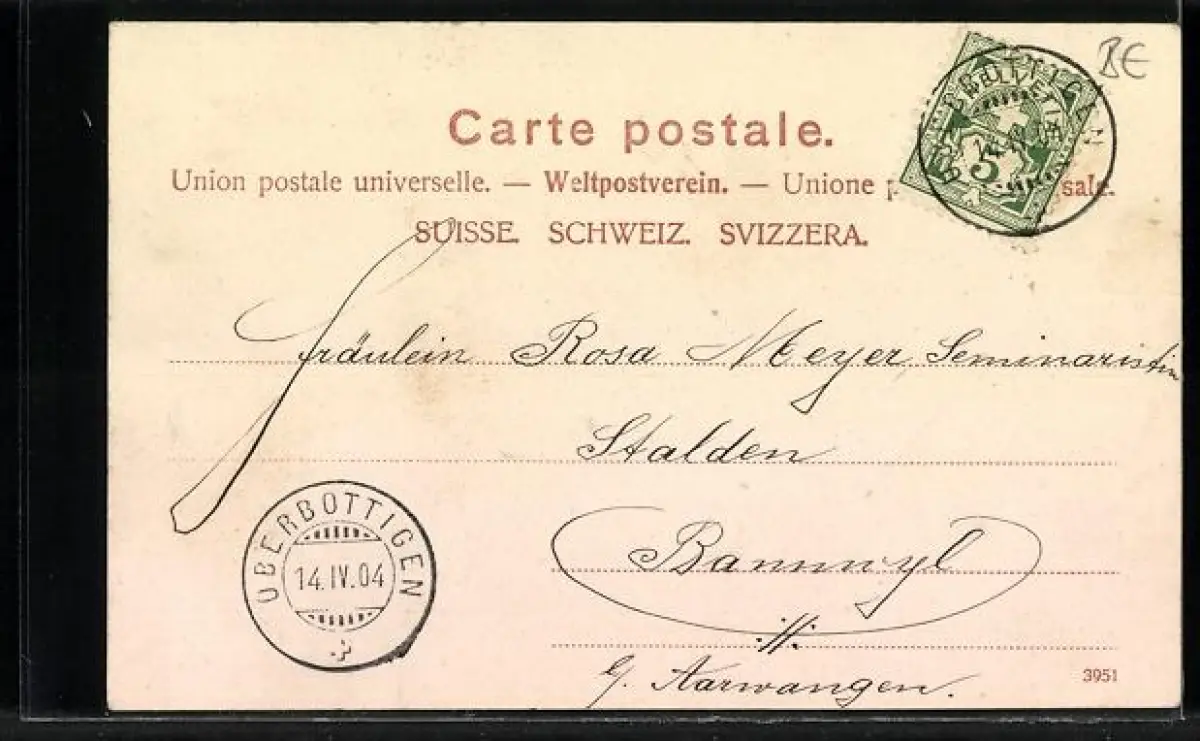 BE
Carte postale.
Union postale universelle. — Weltpostverein. — Unione sale.
SUISSE. SCHWEIZ. SVIZZERA.
HELVETIA
5
Fräulein Rosa Meyer Seminaristin
Stalden
Bannwyl
b/ Aarwangen.
OBERBOTTIGEN
14. IV. 04
3951